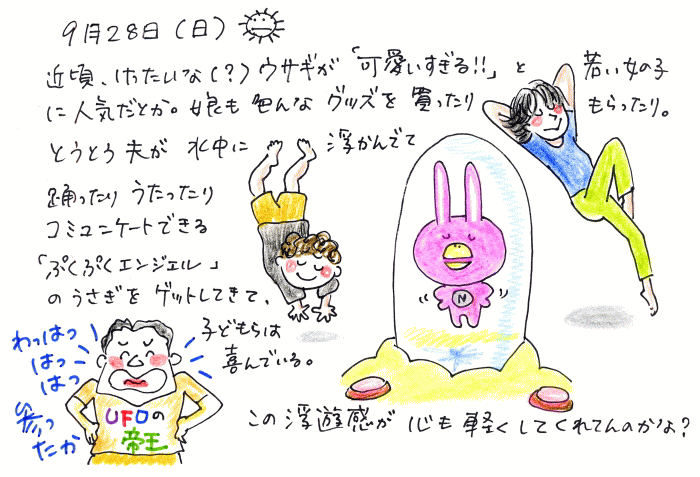 9月28日(日)
近頃、けったいな(?)ウサギが「可愛いすぎる!!」と 若い女の子
に人気だとか。娘も色んなグッズを買ったり もらったり。
とうとう夫が 水中に 浮かんでて
踊ったり うたったり
コミュニケートできる
「ぷくぷくエンジェル」
のうさぎを ゲットしてきて、
子どもらは
喜んでいる。
わっはっ
はっ
はっ
参っ
たか
UFOの
帝王
N
この浮遊感が 心も軽くしてくれてんのかな?